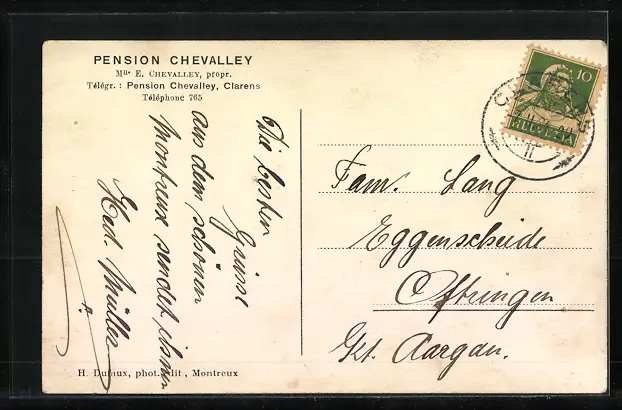 PENSION CHEVALLEY
Mlle E. CHEVALLEY, propr.
Télégr. : Pension Chevalley, Clarens
Téléphone 765
Die besten
Grüsse
aus dem schönen
Montreux sendet
Hed. Müller
H. Dufaux, phot. édit, Montreux
10
HELVETIA
Fam. Lang
Eggenscheide
Oftringen
Kt. Aargau.